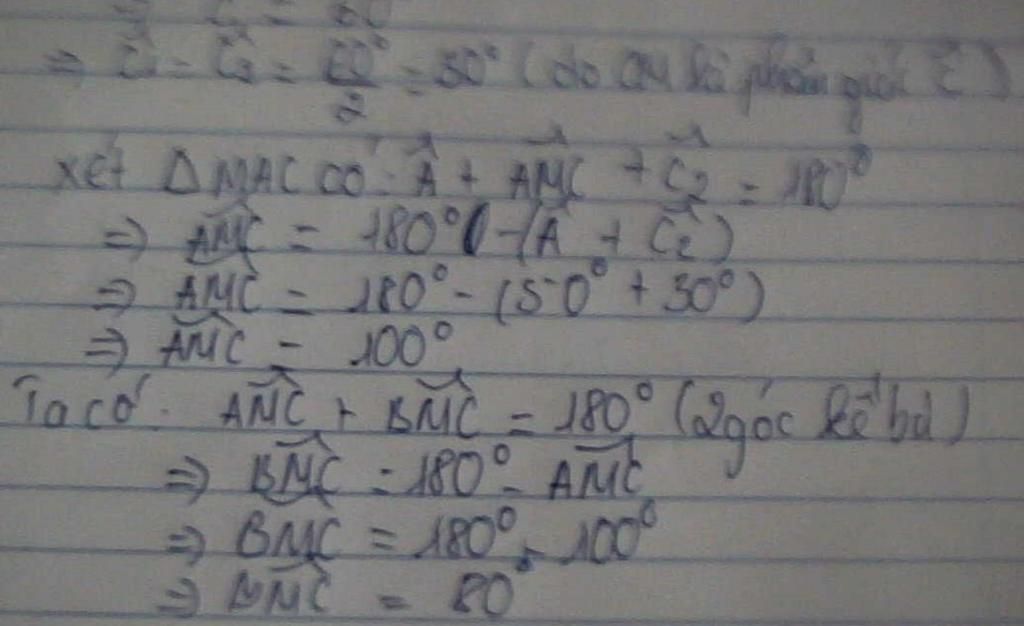 ⇒ Ĉ₁ = Ĉ₂ = 60°/2 = 30° (do CM là phân giác Ĉ)
xét Δ MAC có: Â + AMC + Ĉ₂ = 180°
⇒ AMC = 180° - (Â + Ĉ₂)
⇒ AMC = 180° - (50° + 30°)
⇒ AMC = 100°
Ta có: AMC + BMC = 180° (2 góc kề bù)
⇒ BMC = 180° - AMC
⇒ BMC = 180° - 100°
⇒ BMC = 80°